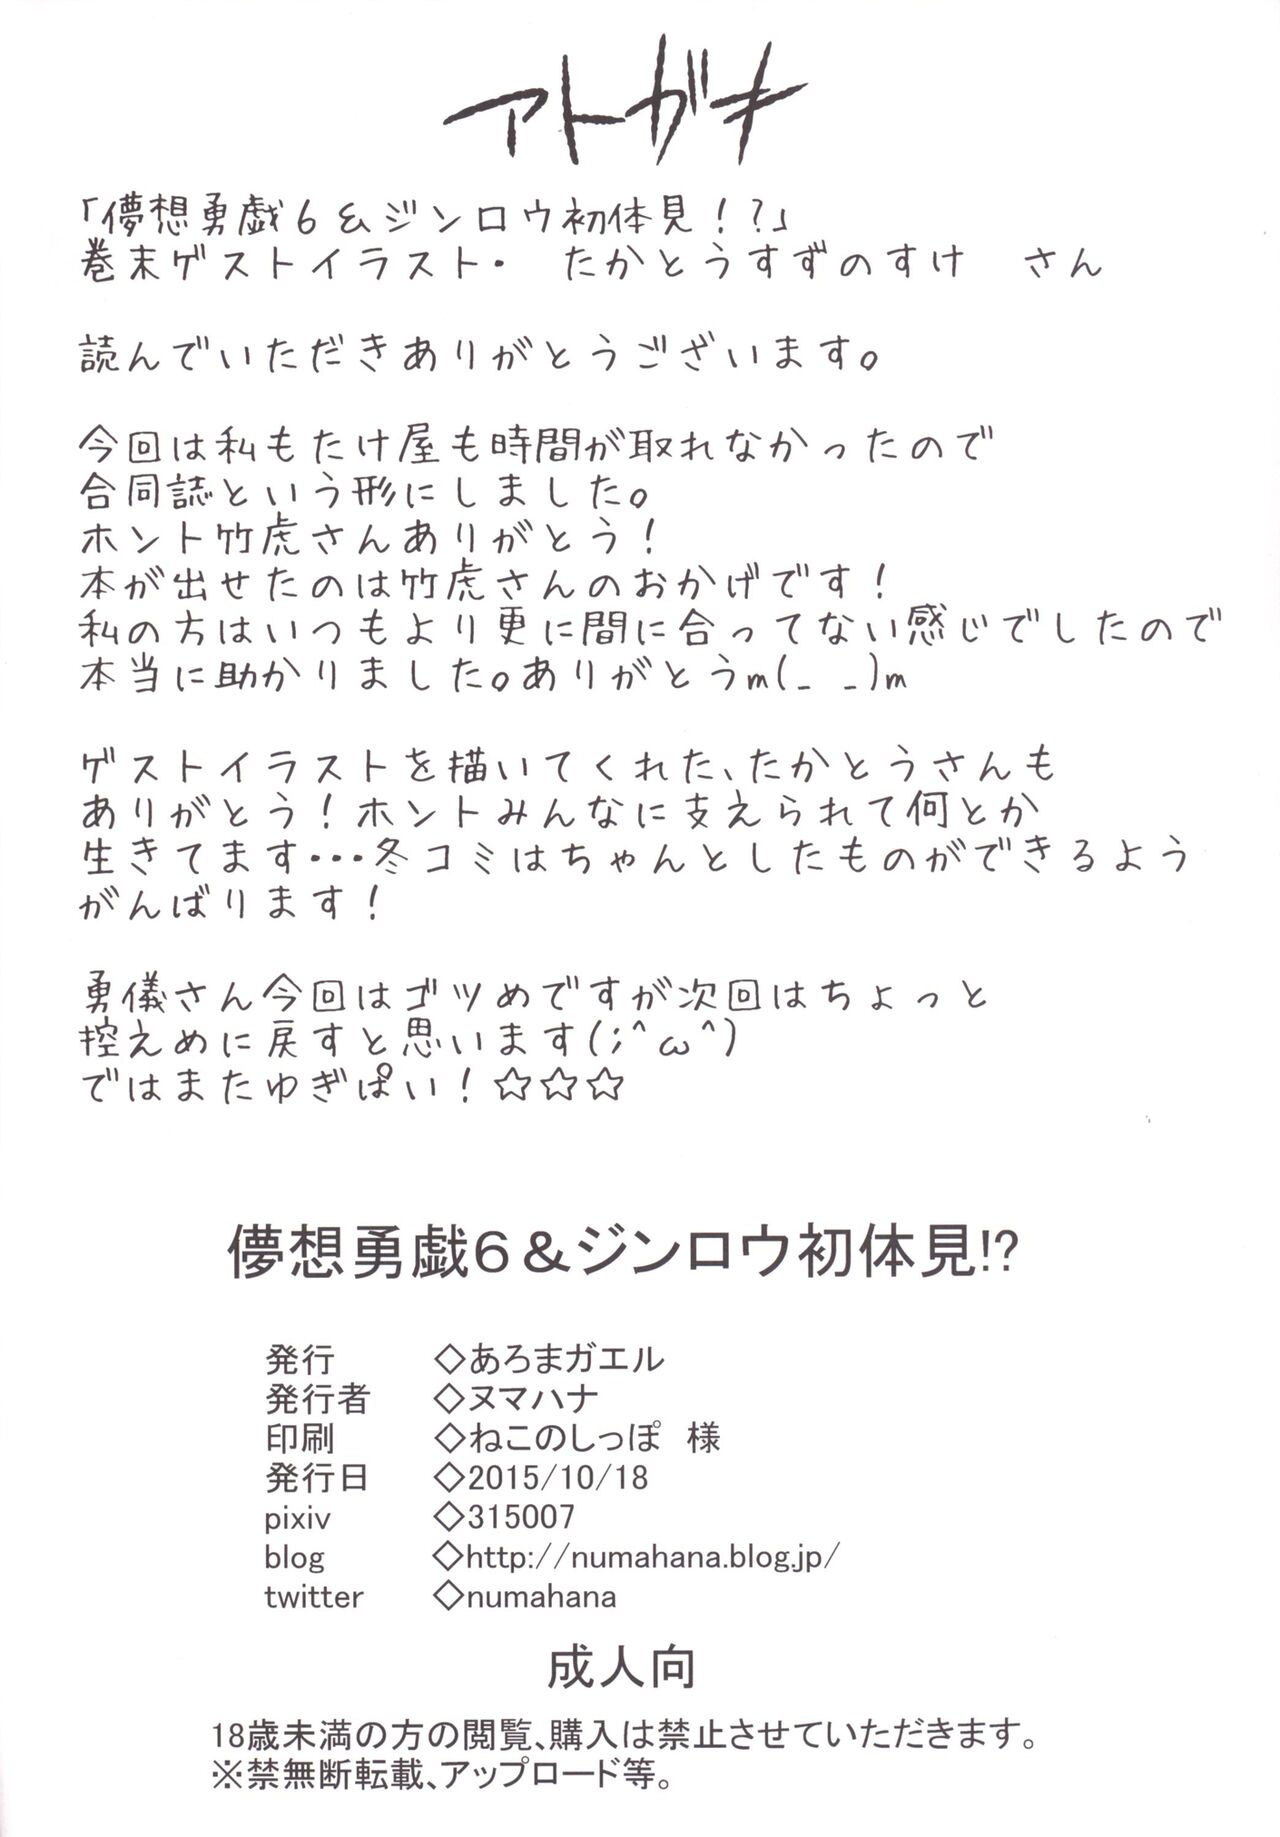 アトガキ
「儚想勇戯6&ジンロウ初体見!?」
巻末ゲストイラスト・　たかとうすずのすけ　さん
読んでいただきありがとうございます。
今回は私もたけ屋も時間が取れなかったので
合同誌という形にしました。
ホント竹虎さんありがとう!
本が出せたのは竹虎さんのおかげです!
私の方はいつもより更に間に合ってない感じでしたので
本当に助かりました。ありがとうm(_ _)m
ゲストイラストを描いてくれた、たかとうさんも
ありがとう!ホントみんなに支えられて何とか
生きてます・・・冬コミはちゃんとしたものができるよう
がんばります!
勇儀さん今回はゴツめですが次回はちょっと
控えめに戻すと思います(;^ω^)
ではまたゆぎぱい!☆☆☆
儚想勇戯6&ジンロウ初体見!?
発行　◇あろまガエル
発行者　◇ヌマハナ
印刷　◇ねこのしっぽ 様
発行日　◇2015/10/18
pixiv　◇315007
blog　◇http://numahana.blog.jp/
twitter　◇numahana
成人向
18歳未満の方の閲覧、購入は禁止させていただきます。
※禁無断転載、アップロード等。